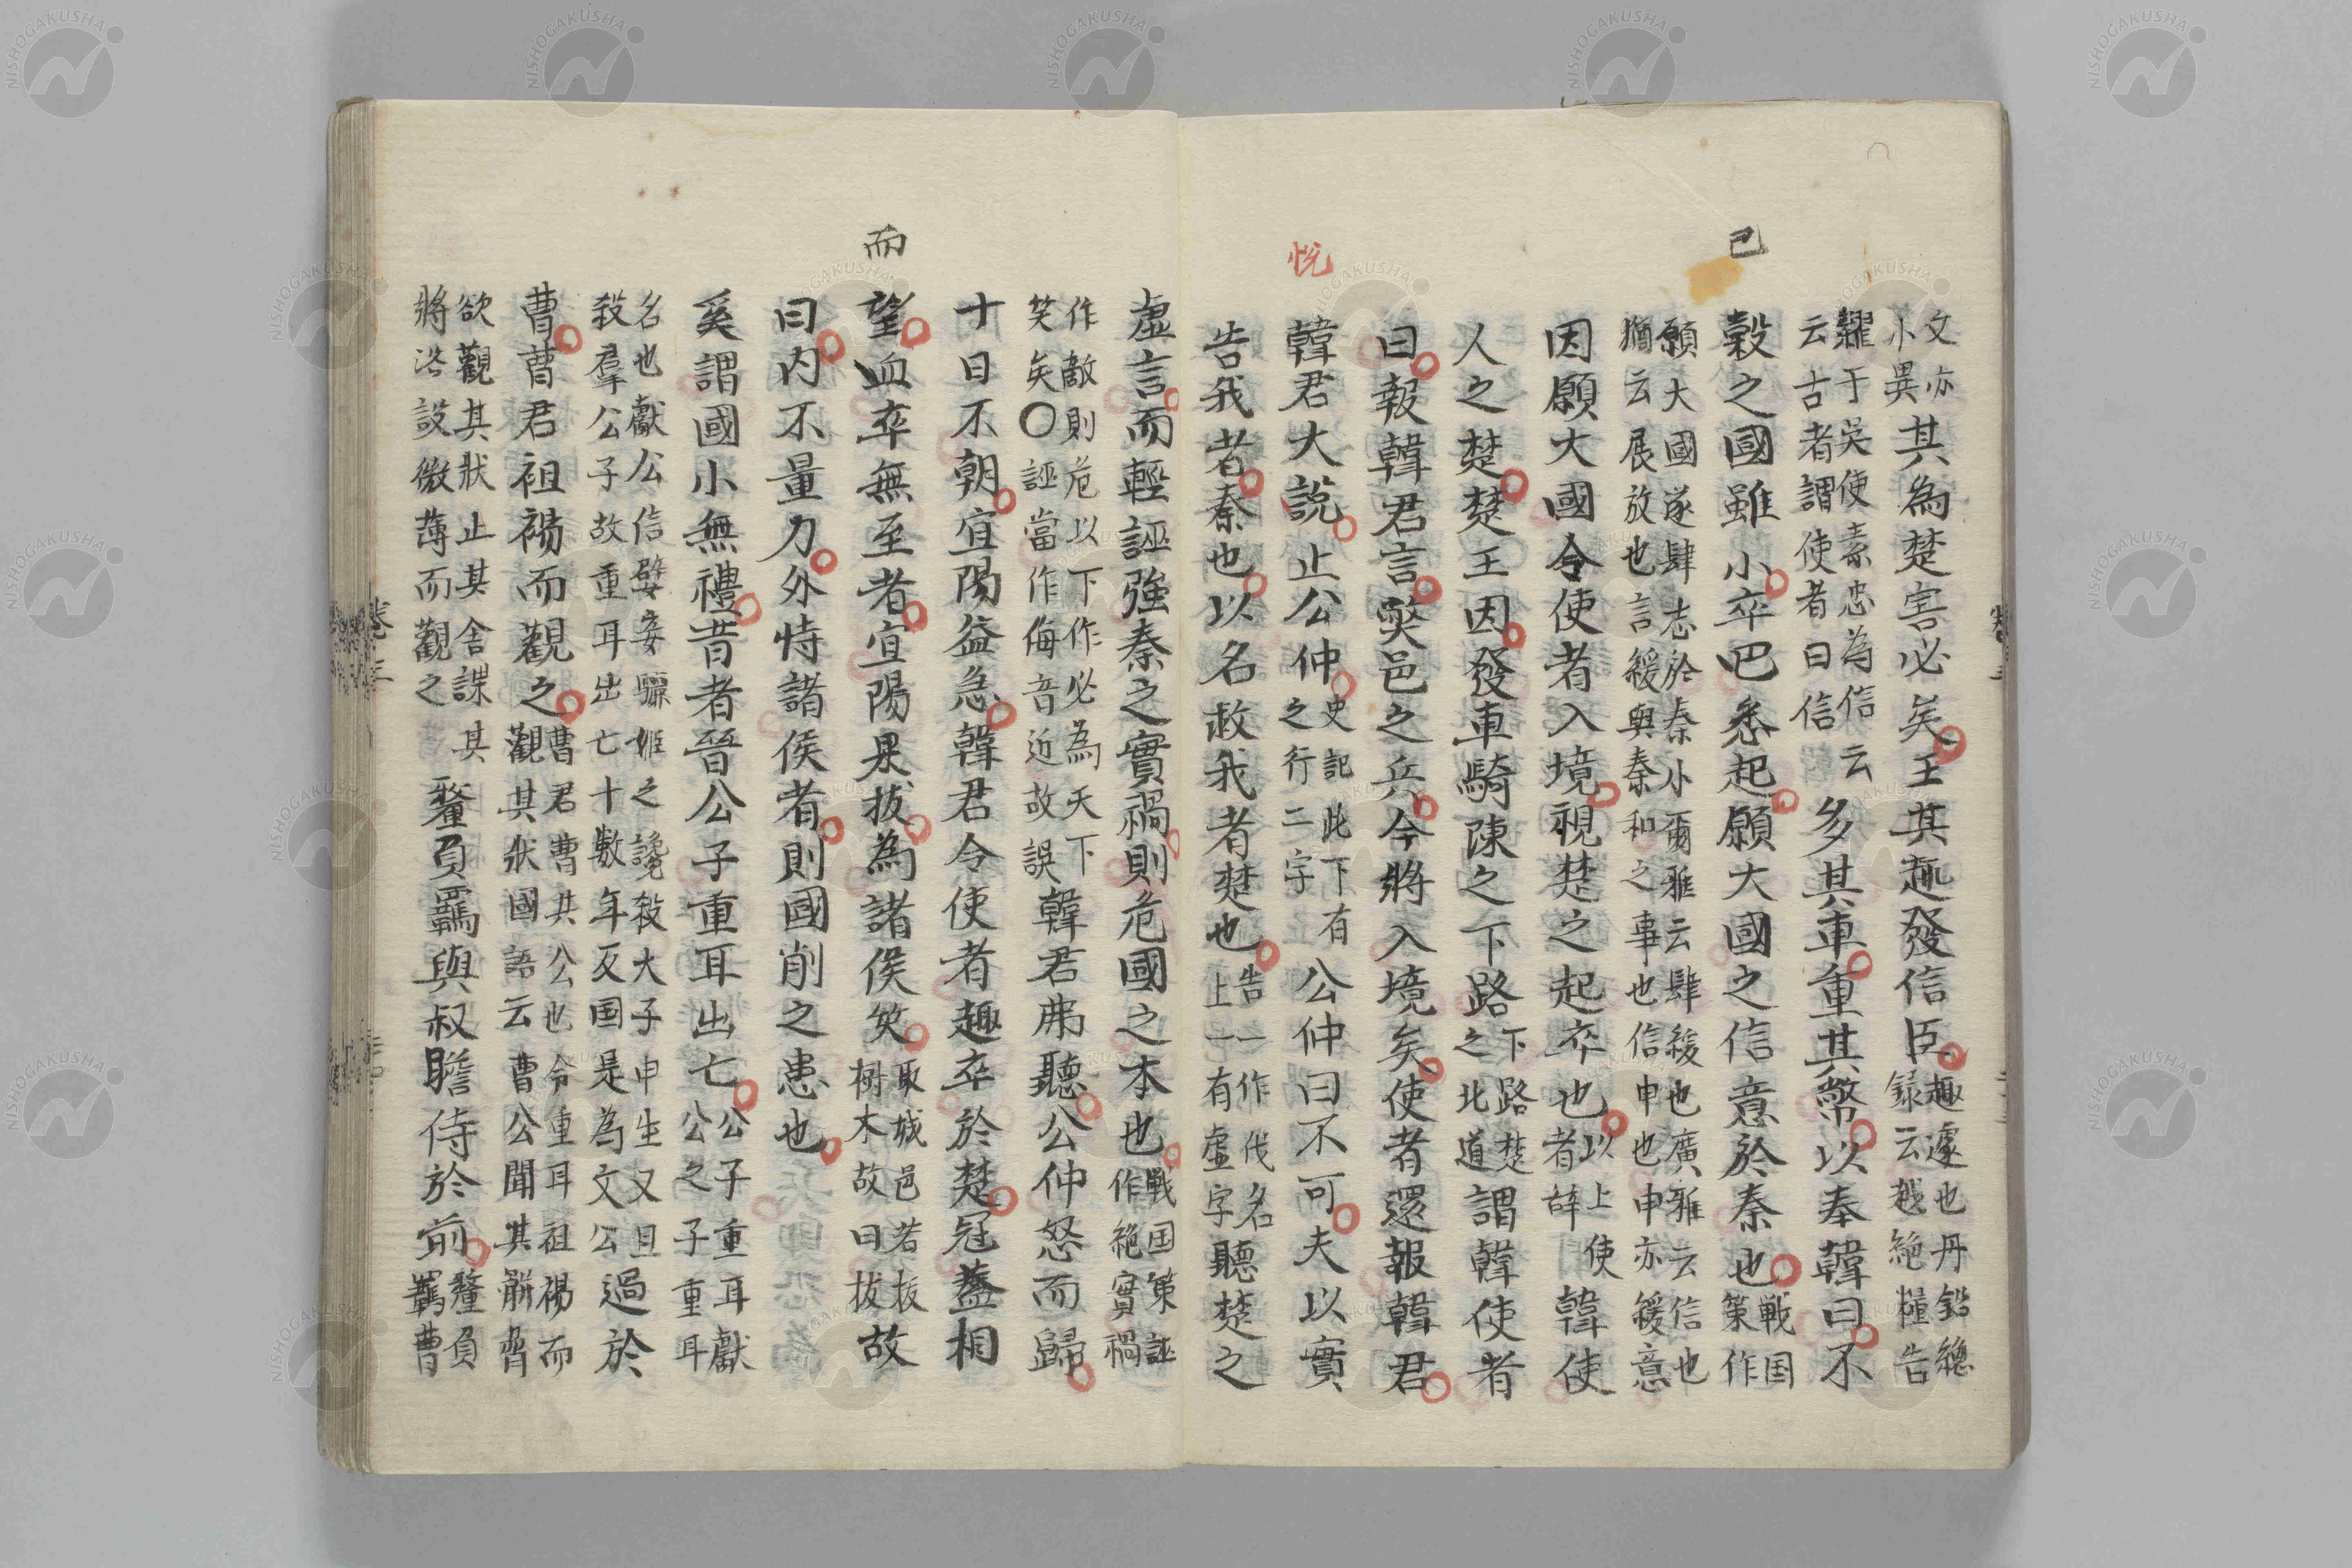 己
悦
文亦
小異
其為楚害必矣王其趣發信臣
趣遽也丹鉛總
録云越絶糧告
糶于吳使素忠為信云
云古者謂使者曰信
多其車重其幣以奉韓曰不
穀之國雖小卒巴悉起願大國之信意於秦也
戦国
策作
願大國遂肆志於秦小爾雅云肆緩也廣雅云信也
猶云展放也言緩與秦和之事也信申也申亦緩意
因願大國令使者入境視楚之起卒也
以上使
者辞
韓使
人之楚楚王因發車騎陳之下路
下路楚
之北道
謂韓使者
曰報韓君言獘邑之兵今將入境矣使者還報韓君
韓君大說止公仲
史記此下有
之行二字
公仲曰不可夫以實
告我者秦也以名救我者楚也
告一作伐名
上一有虚字
聽楚之
虛言而輕誣強秦之實禍則危國之本也
戦国策誣
作絶實禍
作敵則危以下作必為天下
笑矣〇誣當作侮音近故誤
韓君弗聽公仲怒而歸
十日不朝宜陽益急韓君令使者趣卒於楚冠蓋相
而
望血卒無至者宜陽果拔為諸侯笑
取城邑若拔
樹木故曰拔
故
曰內不量力外恃諸侯者則國削之患也
奚謂國小無禮昔者晉公子重耳出亡
公子重耳獻
公之子重耳
名也獻公信嬖妾驪姬之讒殺大子申生又且
殺羣公子故重耳出亡十數年反国是為文公
過於
曹曹君袒裼而觀之
曹君曹共公也令重耳袒裼而
觀其狀國語云曹公聞其骿脅
欲觀其狀止其舍諜其
將浴設微薄而觀之
釐負羈與叔瞻侍於前
釐負
羈曹
卷三